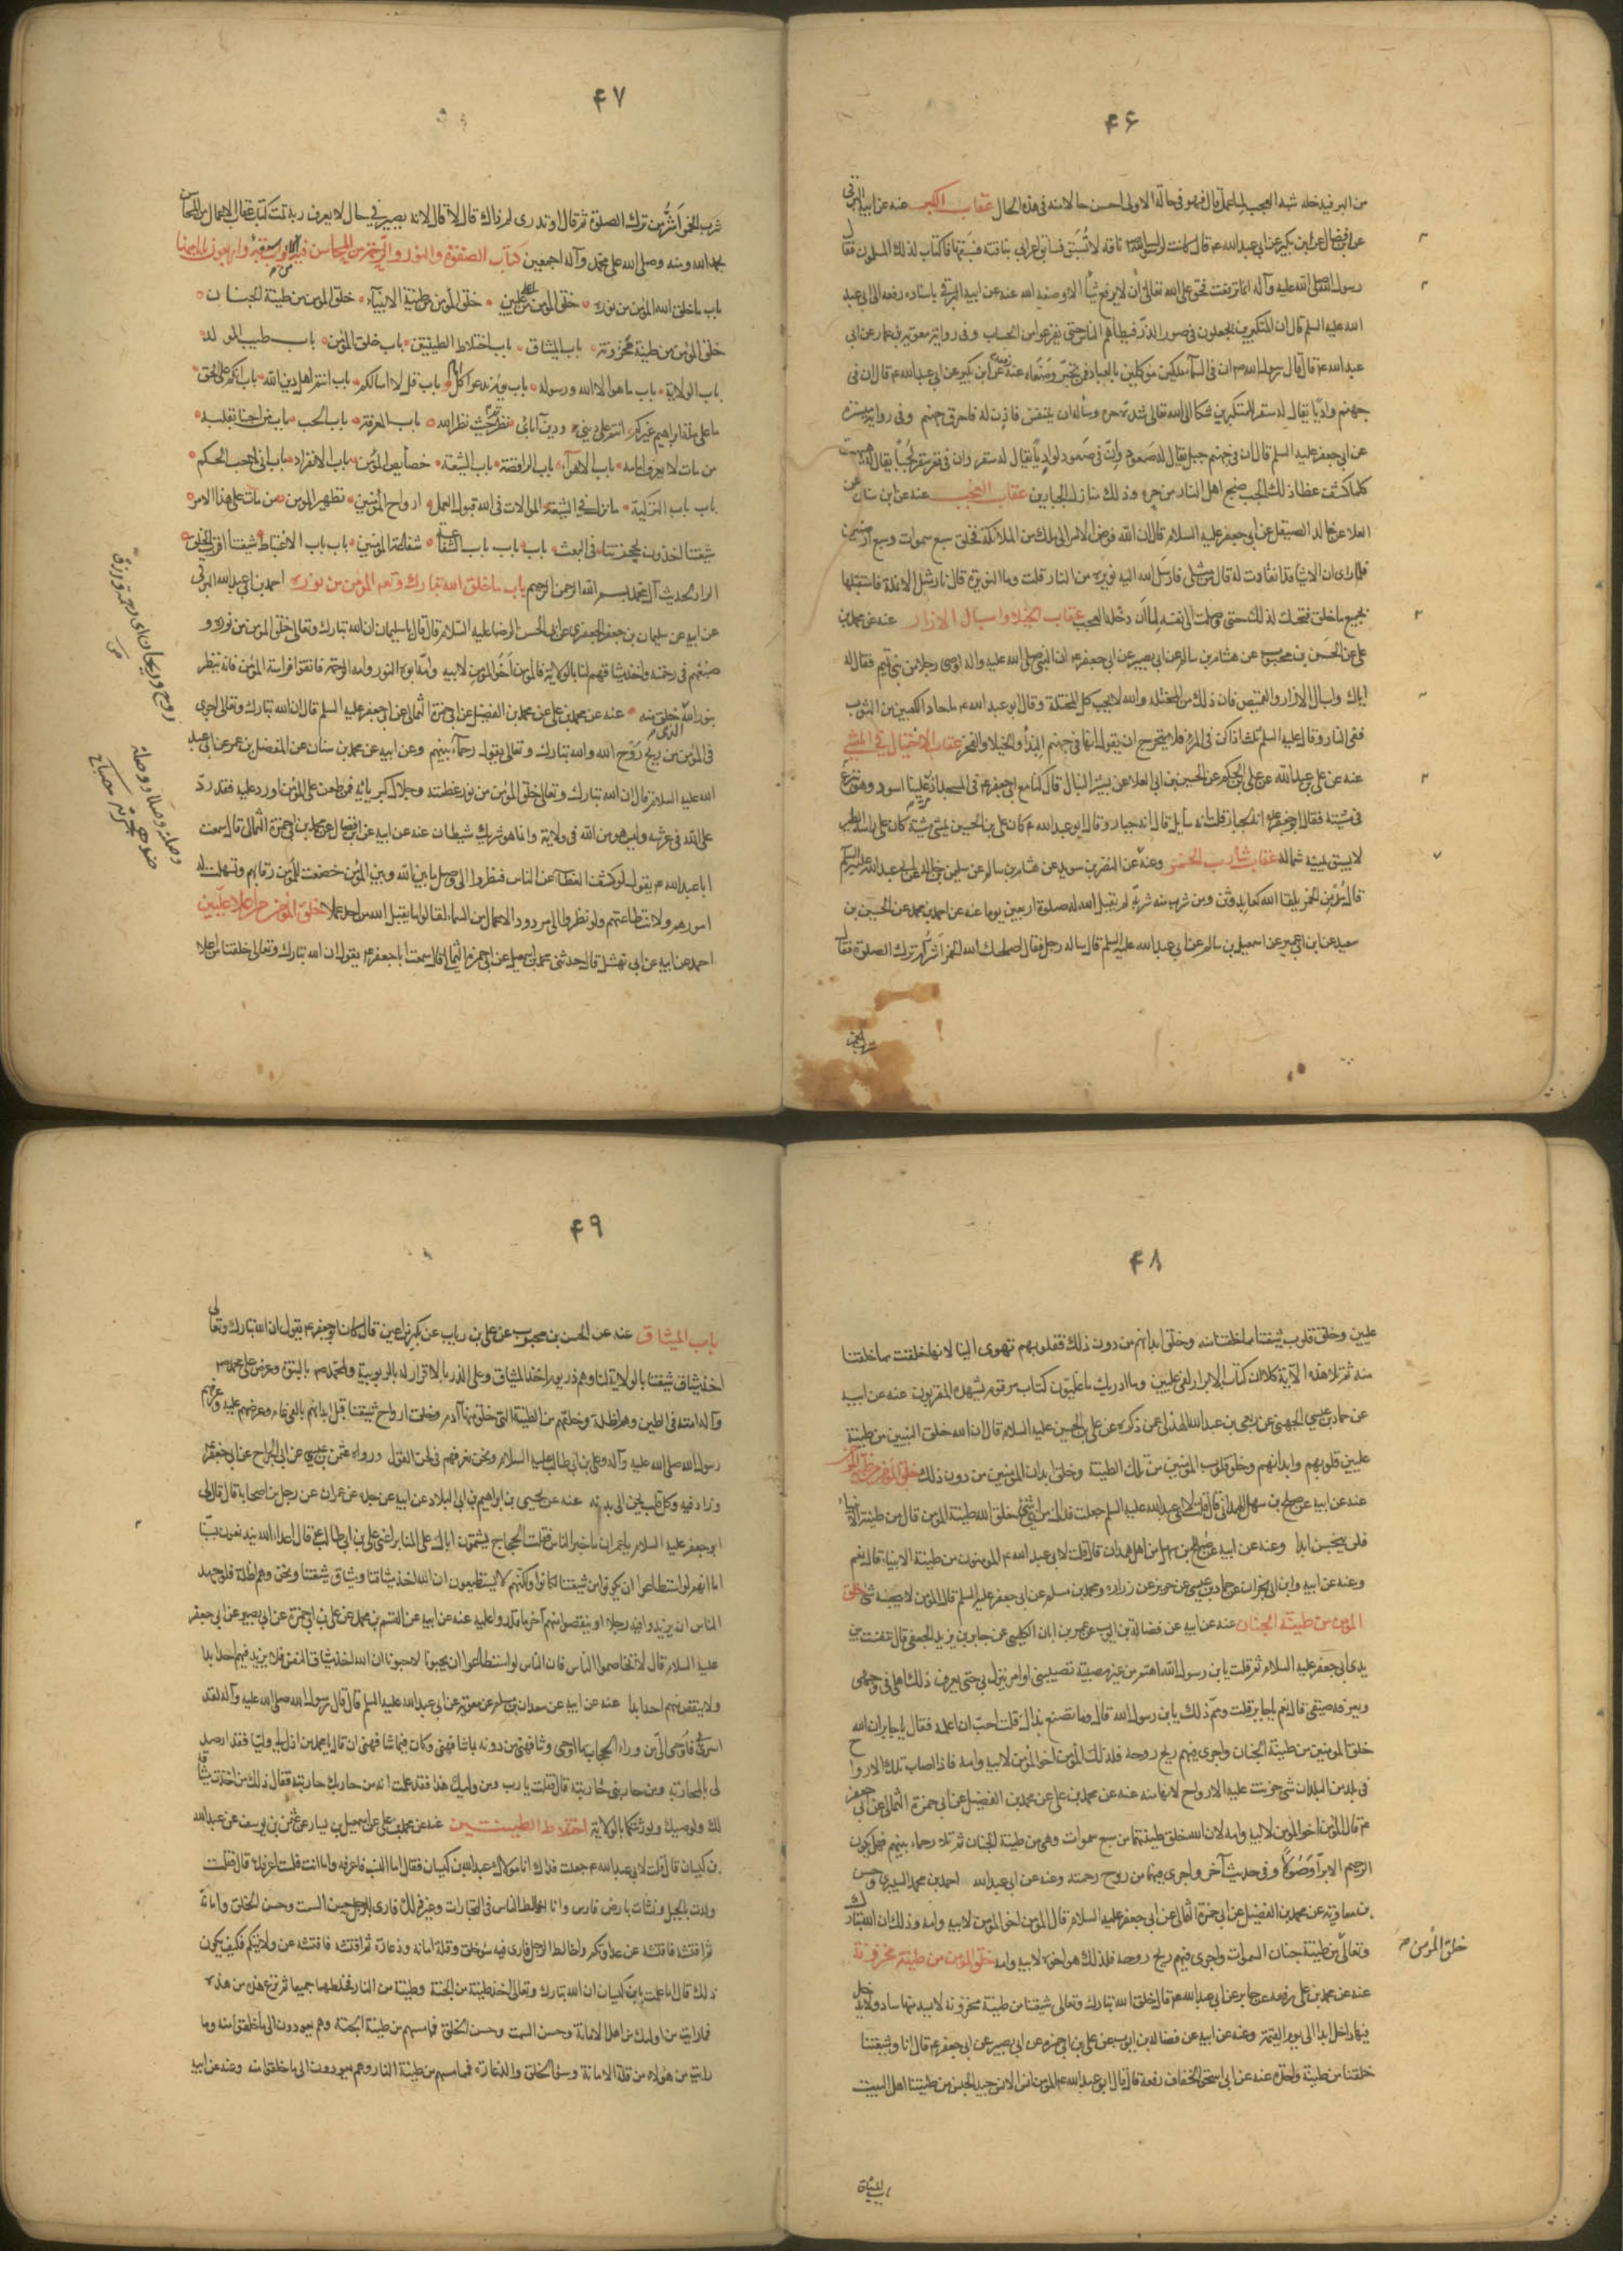 ۴۶
من البر فيدخله شبه العجب لما عمل قال فهو في حالة الاولى احسن حالا منه في هذه الحال عقاب الكبر عنه عن ابيه البرقي
رسول الله صلى الله عليه وآله انما ترفعت فحق على الله تعالى ان لا يرفع شيأ الا وضعه الله عنه عن ابيه البرقي باسناده رفعه الى ابي عبد
الله عليه السلم قال ان المتكبرين يجعلون في صور الذر فيطأهم الناس حتى يفرغوا من الحساب وفي رواية معوية بن عمار عن ابي
عبد الله ع قال قال رسول الله ص ان في السماء ملكين موكلين بالعباد فمن تجبر وضعاه عنه عن ابن بكير عن ابي عبد الله ع قال ان في
جهنم واديا يقال له سقر للمتكبرين شكا الى الله تعالى شدة حره وسأله ان يتنفس فاذن له فاحرق جهنم وفي رواية ميسرة
عن ابي جعفر عليه السلم قال ان في جهنم جبل يقال له صعود وان في صعود لواديا يقال له سقر وان في قعر سقر لجبا يقال له هبهب
كلما كشف غطاء ذلك الجب ضج اهل النار من حره وذلك منازل الجبارين عقاب العجب عنه عن ابن سنان عن
العلا عن خالد الصيقل عن ابي جعفر عليه السلام قال ان الله فوض الامر الى ملك من الملائكة فخلق سبع سموات وسبع ارضين
فلما راى ان الاشياء قد انقادت له قال من مثلي فارسل الله اليه نويرة من النار قلت وما النويرة قال نار مثل الانملة فاستقبلها
بجميع ما خلق فتخللت لذلك حتى وصلت الى نفسه لما ان دخله العجب عقاب الخيلاء واسبال الازار عنه عن محمد بن
علي عن الحسن بن محبوب عن هشام بن سالم عن ابي بصير عن ابي جعفر ع ان النبي صلى الله عليه وآله اوصى رجلا من بني تميم فقال له
اياك واسبال الازار والقميص فان ذلك من المخيلة والله لا يحب كل المخيلة وقال ابو عبد الله ع ما حاذا الكعبين من الثوب
ففي النار وقال عليه السلم ثلث اذا كن في المرء فلا يتحرج ان يقول انها في جهنم البذأ والخيلاء والفخر عقاب الاختيال في المشي
عنه عن علي بن عبد الله عن علي بن الحكم عن الحسين بن ابي العلا عن بشير النبال قال كنا مع ابي جعفر ع في المسجد اذ مر علينا اسود وهو ينزع
في مشيته فقال ابو جعفر ع انه لجبار قلت انه سايل قال انه جبار وقال ابو عبد الله ع كان علي بن الحسين يمشي مشية كان على راسه الطير
لا يسبق يمينه شماله عقاب شارب الخمر وعنه عن النضر بن سويد عن هشام بن سالم عن سليمن بن خالد عن ابي عبد الله عليه السلم
قال مدمن الخمر يلقا الله كعابد وثن ومن شرب منه شربة لم يقبل الله له صلوة اربعين يوما عنه عن احمد بن محمد عن الحسين بن
سعيد عن ابن ابي عمير عن اسمعيل بن سالم عن ابي عبد الله عليه السلم قال ساله رجل فقال اصلحك الله الخمر اشر ام ترك الصلوة فقال
شرب الخمر
۴۷
شرب الخمر اشر من ترك الصلوة ثم قال او تدري لم ذاك قال لا قال لانه يصير في حال لا يعرف ربه تمت كتاب عقاب الاعمال من المحاسن
بحمد الله ومنه وصلى الله على محمد وآله اجمعين كتاب الصفوة والنور والرحمة من المحاسن
باب ما خلق الله المؤمن من نوره خلق المؤمن من عليين خلق المؤمن من طينة الانبياء خلق المؤمن من طينة الجنان
خلق المؤمن من طينة مخزونة باب الميثاق باب اختلاط الطينتين باب خلق المؤمن باب طيب المولد
باب الولاية باب ما هو الا الله ورسوله باب يوم ندعوا كل باب قل لا اسالكم باب انتم اهل دين الله باب انكم على الحق
ما على ملة ابراهيم غيركم انتم على ديني ودين آبائي نظرتم حيث نظر الله باب المعرفة باب الحب باب من احبنا بقلبه
من مات لا يعرف امامه باب الاهواء باب الرافضة باب الشيعة خصائص المؤمن باب الانفراد
باب باب التزكية ما نزل في الشيعة الموالات في الله قبول العمل ارواح المؤمنين تطهير المؤمن من مات على هذا الامر
شيعتنا اخذون بحجزتنا في البعث باب باب باب الشفاعة شفاعة المؤمنين باب باب الاغتباط شيعتنا اقرب الخلق
بسم الله الرحمن الرحيم باب ما خلق الله تبارك وتعالى المؤمن من نوره احمد بن ابي عبد الله البرقي
عن ابيه عن سليمان بن جعفر الجعفري عن ابي الحسن الرضا عليه السلام قال قال يا سليمان ان الله تبارك وتعالى خلق المؤمن من نوره و
صبغهم في رحمته واخذ ميثاقهم لنا بالولاية فالمؤمن اخو المؤمن لابيه وامه ابوه النور وامه الرحمة فاتقوا فراسة المؤمن فانه ينظر
بنور الله الذي خلق منه عنه عن محمد بن علي عن محمد بن الفضيل عن ابي حمزة الثمالي عن ابي جعفر عليه السلم قال ان الله تبارك وتعالى اجرى
في المؤمن من ريح روح الله والله تبارك وتعالى يقول رحماء بينهم وعن ابيه عن محمد بن سنان عن المفضل بن عمر عن ابي عبد
الله عليه السلام قال ان الله تبارك وتعالى خلق المؤمن من نور عظمته وجلال كبريائه فمن طعن على المؤمن او رد عليه فقد رد
على الله في عرشه وليس هو من الله في ولاية وانما هو شرك شيطان عنه عن ابيه عن ابن فضال عن محمد عن ابي حمزة الثمالي قال سمعت
ابا عبد الله ع يقول لو كشف الغطاء عن الناس فنظروا الى وصل ما بين الله وبين المؤمن خضعت للمؤمن رقابهم وتسهلت له
امورهم ولانت طاعتهم ولو نظروا الى مردود الاعمال من السماء لقالوا ما يقبل الله من احد عملا خلق المؤمن من عليين
احمد عن ابيه عن ابي نهشل قال حدثني محمد بن اسمعيل عن ابي حمزة الثمالي قال سمعت ابا جعفر ع يقول ان الله تبارك وتعالى خلقنا من اعلا
روح وريحان اى رحمة ورزق
وصله وصلا وصلة
۴۸
عليين وخلق قلوب شيعتنا مما خلقنا منه وخلق ابدانهم من دون ذلك فقلوبهم تهوى الينا لانها خلقت مما خلقنا
منه ثم تلا هذه الآية كلا ان كتاب الابرار لفي عليين وما ادريك ما عليون كتاب مرقوم يشهده المقربون عنه عن ابيه
عن حماد بن عيسى الجهني عن ربعي بن عبد الله الهذلي عن ذكره عن علي بن الحسين عليه السلام قال ان الله خلق النبيين من طينة
عليين قلوبهم وابدانهم وخلق قلوب المؤمنين من تلك الطينة وخلق ابدان المؤمنين من دون ذلك
عنه عن ابيه عن صالح بن سهل الهمداني قال قلت لابي عبد الله عليه السلم جعلت فداك من اى شئ خلق الله طينة المؤمن قال من طينة الانبياء
فلن يخبث ابدا وعنه عن ابيه عن صالح بن سهل من اهل همدان قال قلت لابي عبد الله ع المؤمنون من طينة الانبياء قال نعم
وعنه عن ابيه وابن ابي نجران عن حماد بن عيسى عن حريز عن زرارة ومحمد بن مسلم عن ابي جعفر عليه السلم قال المؤمن لا ينجسه شئ خلق
المؤمن من طينة الجنان عنه عن ابيه عن فضالة بن ايوب عن عمر بن ابان الكلبي عن جابر بن يزيد الجعفي قال تنفست بين
يدي ابي جعفر عليه السلام ثم قلت يا بن رسول الله اهتم من غير مصيبة تصيبني او امر نزل بي حتى يعرف ذلك اهلي في وجهي
ويعرفه صديقي قال نعم يا جابر قلت ومم ذلك يا بن رسول الله قال وما تصنع بذاك قلت احب ان اعلمه فقال يا جابر ان الله
خلق المؤمنين من طينة الجنان واجرى فيهم ريح روحه فلذلك المؤمن اخو المؤمن لابيه وامه فاذا اصاب تلك الارواح
في بلد من البلدان شئ حزنت عليه الارواح لانها منه عنه عن محمد بن علي عن محمد بن الفضيل عن ابي حمزة الثمالي عن ابي جعفر
ع قال المؤمن اخو المؤمن لابيه وامه لان الله خلق طينتهما من سبع سموات وهي من طينة الجنان ثم تلا رحماء بينهم فهل يكون
الرحيم الا برا وصولا وفي حديث آخر واجرى فيهما من روح رحمته وعنه عن ابي عبد الله احمد بن محمد السياري وحسن
بن معاوية عن محمد بن الفضيل عن ابي حمزة الثمالي عن ابي جعفر عليه السلام قال المؤمن اخو المؤمن لابيه وامه وذلك ان الله تبارك
وتعالى من طينة جنان السموات واجرى فيهم ريح روحه فلذلك هو اخوه لابيه وامه خلق المؤمن من طينة مخزونة
عنه عن محمد بن علي رفعه عن جابر عن ابي عبد الله ع قال خلق الله تبارك وتعالى شيعتنا من طينة مخزونة لا يشذ منها شاذ ولا يدخل
فيها داخل ابدا الى يوم القيمة وعنه عن ابيه عن فضالة بن ايوب عن علي بن ابي حمزة عن ابي بصير عن ابي جعفر ع قال انا وشيعتنا
خلقنا من طينة واحدة عنه عن ابي اسحق الخفاف رفعه قال قال ابو عبد الله ع المؤمن
خلق المؤمن
باب الميثاق
۴۹
باب الميثاق عنه عن الحسن بن محبوب عن علي بن رياب عن بكير بن اعين قال كان ابو جعفر ع يقول ان الله تبارك وتعالى
اخذ ميثاق شيعتنا بالولاية لنا وهم ذر يوم اخذ الميثاق وعلى الذر بالاقرار له بالربوبية ولمحمد ص بالنبوة وعرض على محمد ص
وآله امته في الطين وهم اظلة وخلقهم من الطينة التي خلق منها آدم وخلق ارواح شيعتنا قبل ابدانهم بالفي عام وعرضهم عليه وعرفهم
رسول الله صلى الله عليه وآله وعلي بن ابي طالب عليه السلام ونحن نعرفهم في لحن القول ورواه عثمن بن عيسى عن ابي الجراح عن ابي جعفر
وزاد فيه وكل قلب يحن الى بدنه عنه عن يحيى بن ابراهيم بن ابي البلاد عن ابيه عن جده عن عمران عن رجل من اصحابنا قال قال لي
اما انهم لو استطاعوا ان يكونوا من شيعتنا لكانوا ولكنهم لا يستطيعون ان الله اخذ ميثاقنا وميثاق شيعتنا ونحن وهم اظلة فلو جهد
الناس ان يزيدوا فيه رجلا او ينقصوا منهم آخر ما قدروا عليه عنه عن ابيه عن القسم بن محمد عن علي بن ابي حمزة عن ابي بصير عن ابي جعفر
عليه السلام قال لا تخاصموا الناس فان الناس لو استطاعوا ان يحبونا لاحبونا ان الله اخذ ميثاق النفس فلا يزيد فيهم احد ابدا
ولا ينقص منهم احد ابدا عنه عن ابيه عن سعدان بن مسلم عن معوية عن ابي عبد الله عليه السلم قال قال رسول الله صلى الله عليه وآله لقد
اسرى بي فاوحى الى من وراء الحجاب ما اوحى وشافهني من دونه بما شافهني وكان فيما شافهني ان قال يا محمد من اذل لي وليا فقد ارصد
لي بالمحاربة ومن حاربني حاربته قال فقلت يا رب ومن وليك هذا فقد علمت انه من حاربك حاربته فقال ذلك من اخذت ميثاقه
لك ولوصيك ولورثتكما بالولاية اختلاط الطينتين عنه عن محمد بن علي عن اسمعيل بن يسار عن عثمن بن يوسف عن عبد الله
بن كيسان قال قلت لابي عبد الله ع جعلت فداك انا مولاك عبد الله بن كيسان فقال اما النسب فاعرفه واما انت فلست اعرفك قال قلت
ولدت بالجبل ونشات بارض فارس وانا اخالط الناس في التجارات وغير ذلك فارى الرجل حسن السمت وحسن الخلق وامانة
ثم افتشه فافتشه عن عداوتكم واخالط الرجل فارى فيه سوء خلق وقلة امانة وذعارة ثم افتشه فافتشه عن ولايتكم فكيف يكون
ذلك قال اما علمت يا بن كيسان ان الله تبارك وتعالى اخذ طينة من الجنة وطينة من النار فخلطهما جميعا ثم نزع هذه من هذه
فما رايت من اولئك من اهل الامانة وحسن السمت وحسن الخلق فمما مسهم من طينة الجنة وهم يعودون الى ما خلقوا منه وما
رايت من هؤلاء من قلة الامانة وسوء الخلق والدعارة فمما مسهم من طينة النار وهم يعودون الى ما خلقوا منه وعنه عن ابيه